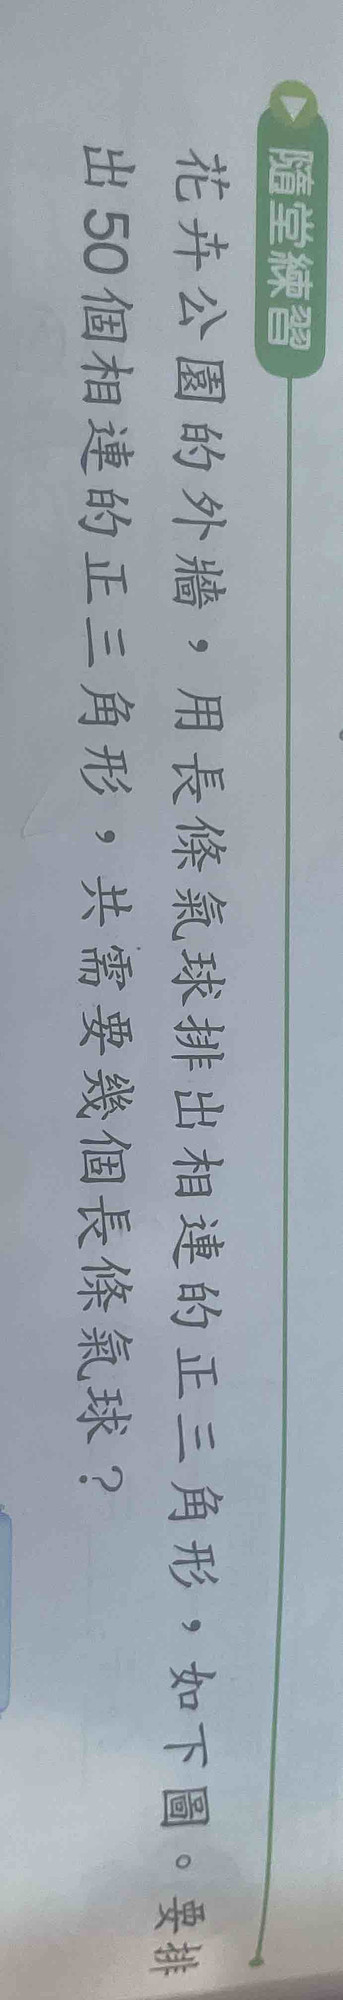 隨堂練習
花卉公園的外牆，用長條氣球排出相連的正三角形，如下圖。要排
出50個相連的正三角形，共需要幾個長條氣球？